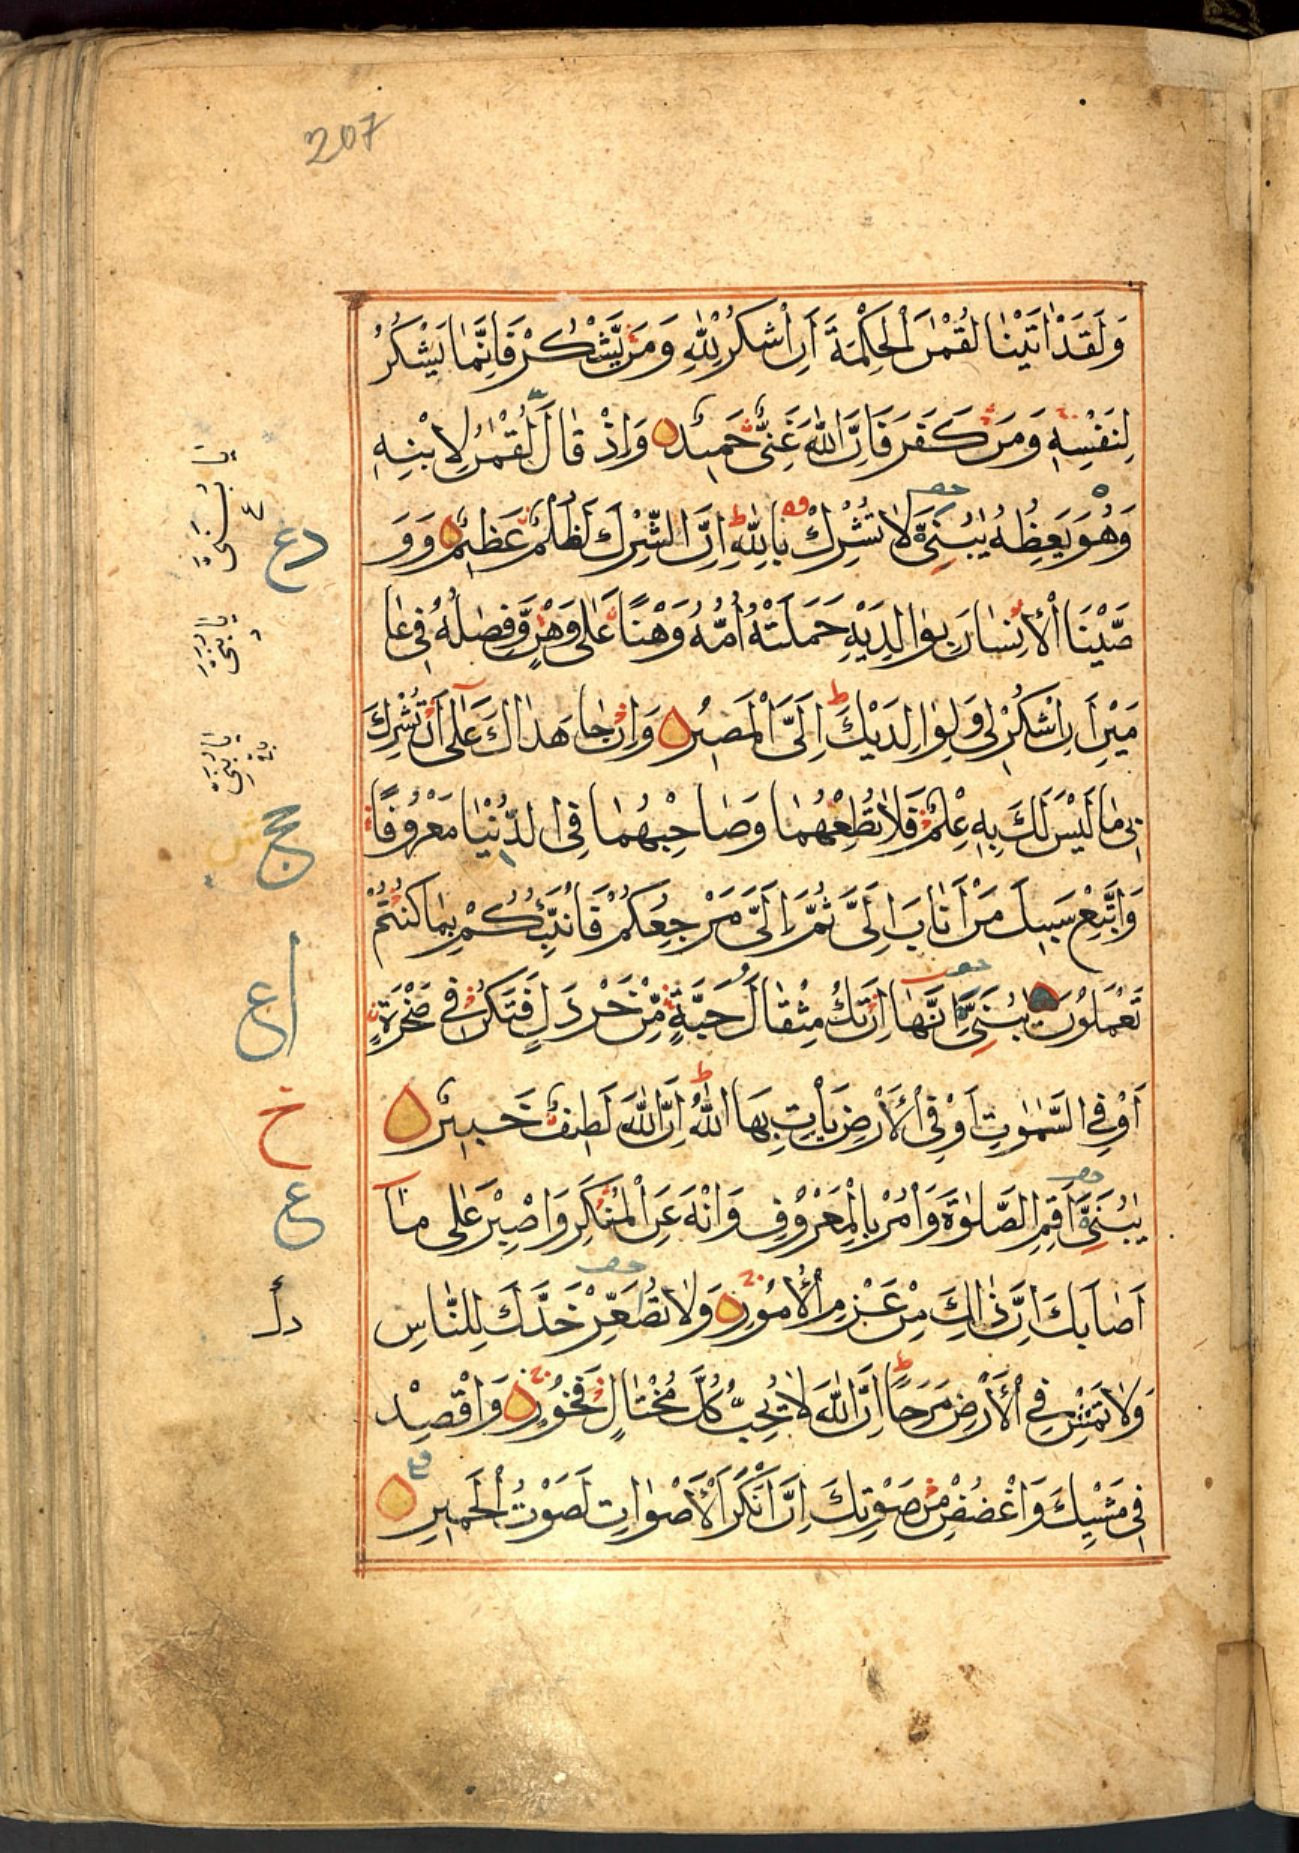 207
وَلَقَدْ اٰتَيْنَا لُقْمٰنَ الْحِكْمَةَ اَنِ اشْكُرْ لِلّٰهِ وَمَنْ يَّشْكُرْ فَاِنَّمَا يَشْكُرُ
لِنَفْسِهٖ وَمَنْ كَفَرَ فَاِنَّ اللّٰهَ غَنِىٌّ حَمِيْدٌ وَاِذْ قَالَ لُقْمٰنُ لِابْنِهٖ
وَهُوَ يَعِظُهٗ يٰبُنَىَّ لَا تُشْرِكْ بِاللّٰهِ ط اِنَّ الشِّرْكَ لَظُلْمٌ عَظِيْمٌ وَوَ
صَّيْنَا الْاِنْسَانَ بِوَالِدَيْهِ حَمَلَتْهُ اُمُّهٗ وَهْنًا عَلٰى وَهْنٍ وَّفِصٰلُهٗ فِى عَا
مَيْنِ اَنِ اشْكُرْ لِى وَلِوَالِدَيْكَ ط اِلَىَّ الْمَصِيْرُ وَاِنْ جَاهَدَاكَ عَلٰى اَنْ تُشْرِكَ
بِى مَا لَيْسَ لَكَ بِهٖ عِلْمٌ فَلَا تُطِعْهُمَا وَصَاحِبْهُمَا فِى الدُّنْيَا مَعْرُوْفًا
وَاتَّبِعْ سَبِيْلَ مَنْ اَنَابَ اِلَىَّ ثُمَّ اِلَىَّ مَرْجِعُكُمْ فَاُنَبِّئُكُمْ بِمَا كُنْتُمْ
تَعْمَلُوْنَ يٰبُنَىَّ اِنَّهَا اِنْ تَكُ مِثْقَالَ حَبَّةٍ مِّنْ خَرْدَلٍ فَتَكُنْ فِى صَخْرَةٍ
اَوْ فِى السَّمٰوٰتِ اَوْ فِى الْاَرْضِ يَاْتِ بِهَا اللّٰهُ ط اِنَّ اللّٰهَ لَطِيْفٌ خَبِيْرٌ
يٰبُنَىَّ اَقِمِ الصَّلٰوةَ وَاْمُرْ بِالْمَعْرُوْفِ وَانْهَ عَنِ الْمُنْكَرِ وَاصْبِرْ عَلٰى مَآ
اَصَابَكَ اِنَّ ذٰلِكَ مِنْ عَزْمِ الْاُمُوْرِ وَلَا تُصَعِّرْ خَدَّكَ لِلنَّاسِ
وَلَا تَمْشِ فِى الْاَرْضِ مَرَحًا ط اِنَّ اللّٰهَ لَا يُحِبُّ كُلَّ مُخْتَالٍ فَخُوْرٍ وَاقْصِدْ
فِى مَشْيِكَ وَاغْضُضْ مِنْ صَوْتِكَ اِنَّ اَنْكَرَ الْاَصْوَاتِ لَصَوْتُ الْحَمِيْرِ